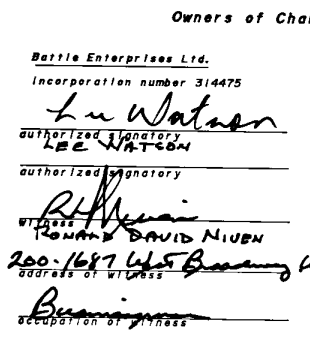 Owners of Cha
Battle Enterprises Ltd.
Incorporation number 314475
Lee Watson
authorized signatory
LEE WATSON
authorized signatory
witness
RONALD DAVID NIVEN
200-1687 West Broadway
address of witness
Businessman
occupation of witness